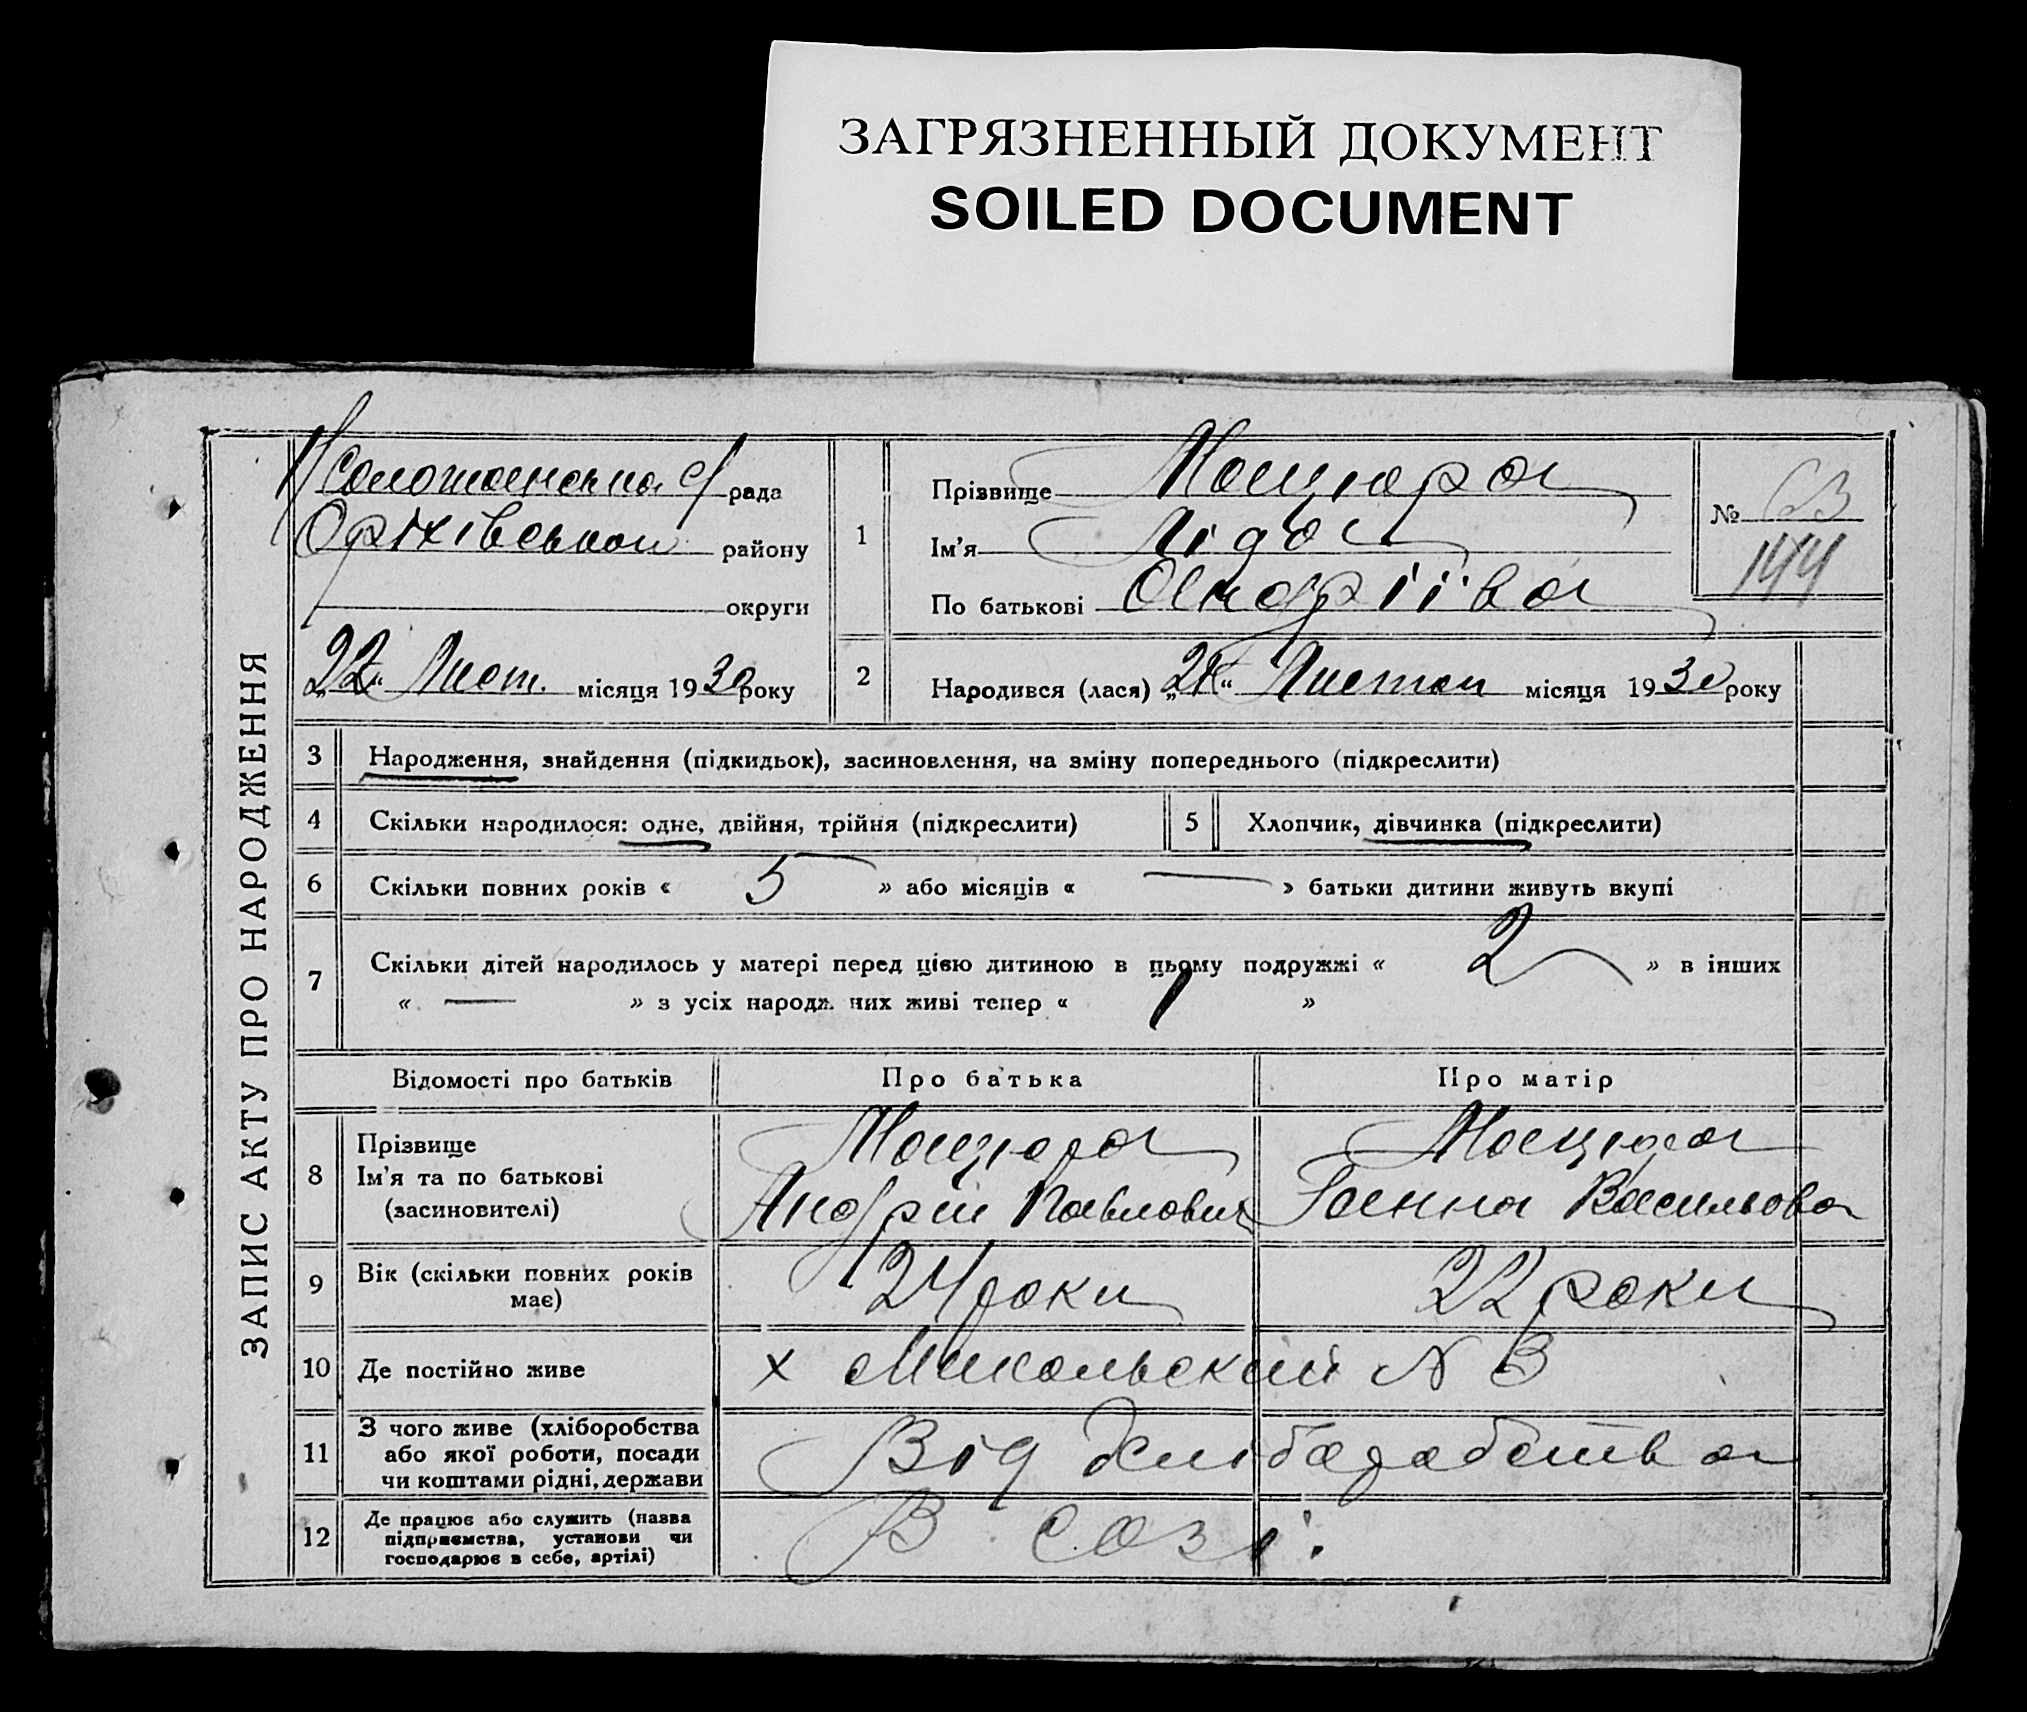 ЗАГРЯЗНЕННЫЙ ДОКУМЕНТ
SOILED DOCUMENT
ЗАПИС АКТУ ПРО НАРОДЖЕННЯ
рада
Оріхівськои району
округи
„22“ Лист. місяця 1930 року
1
Прізвище Мацюра
Ім'я Ліда
По батькові Андріівна
№ 63
144
2 Народився (лася) „21“ Листоп місяця 1930 року
3 Народження, знайдення (підкидьок), засиновлення, на зміну попереднього (підкреслити)
4 Скільки народилося: одне, двійня, трійня (підкреслити) 5 Хлопчик, дівчинка (підкреслити)
6 Скільки повних років « 5 » або місяців « — » батьки дитини живуть вкупі
7 Скільки дітей народилось у матері перед цією дитиною в цьому подружжі « 2 » в інших
« — » з усіх народж них живі тепер « 1 »
Відомості про батьків Про батька Про матір
8 Прізвище
Ім'я та по батькові
(засиновителі)
Мацюра
Андрій Павлович
Мацюра
Ганна Васильова
9 Вік (скільки повних років
має)
24 роки 22 роки
10 Де постійно живе х Микольский N 3
11 З чого живе (хліборобства
або якої роботи, посади
чи коштами рідні, держави
Від хліборобства
12 Де працює або служить (назва
підприємства, установи чи
господарює в себе, артілі)
В созі.